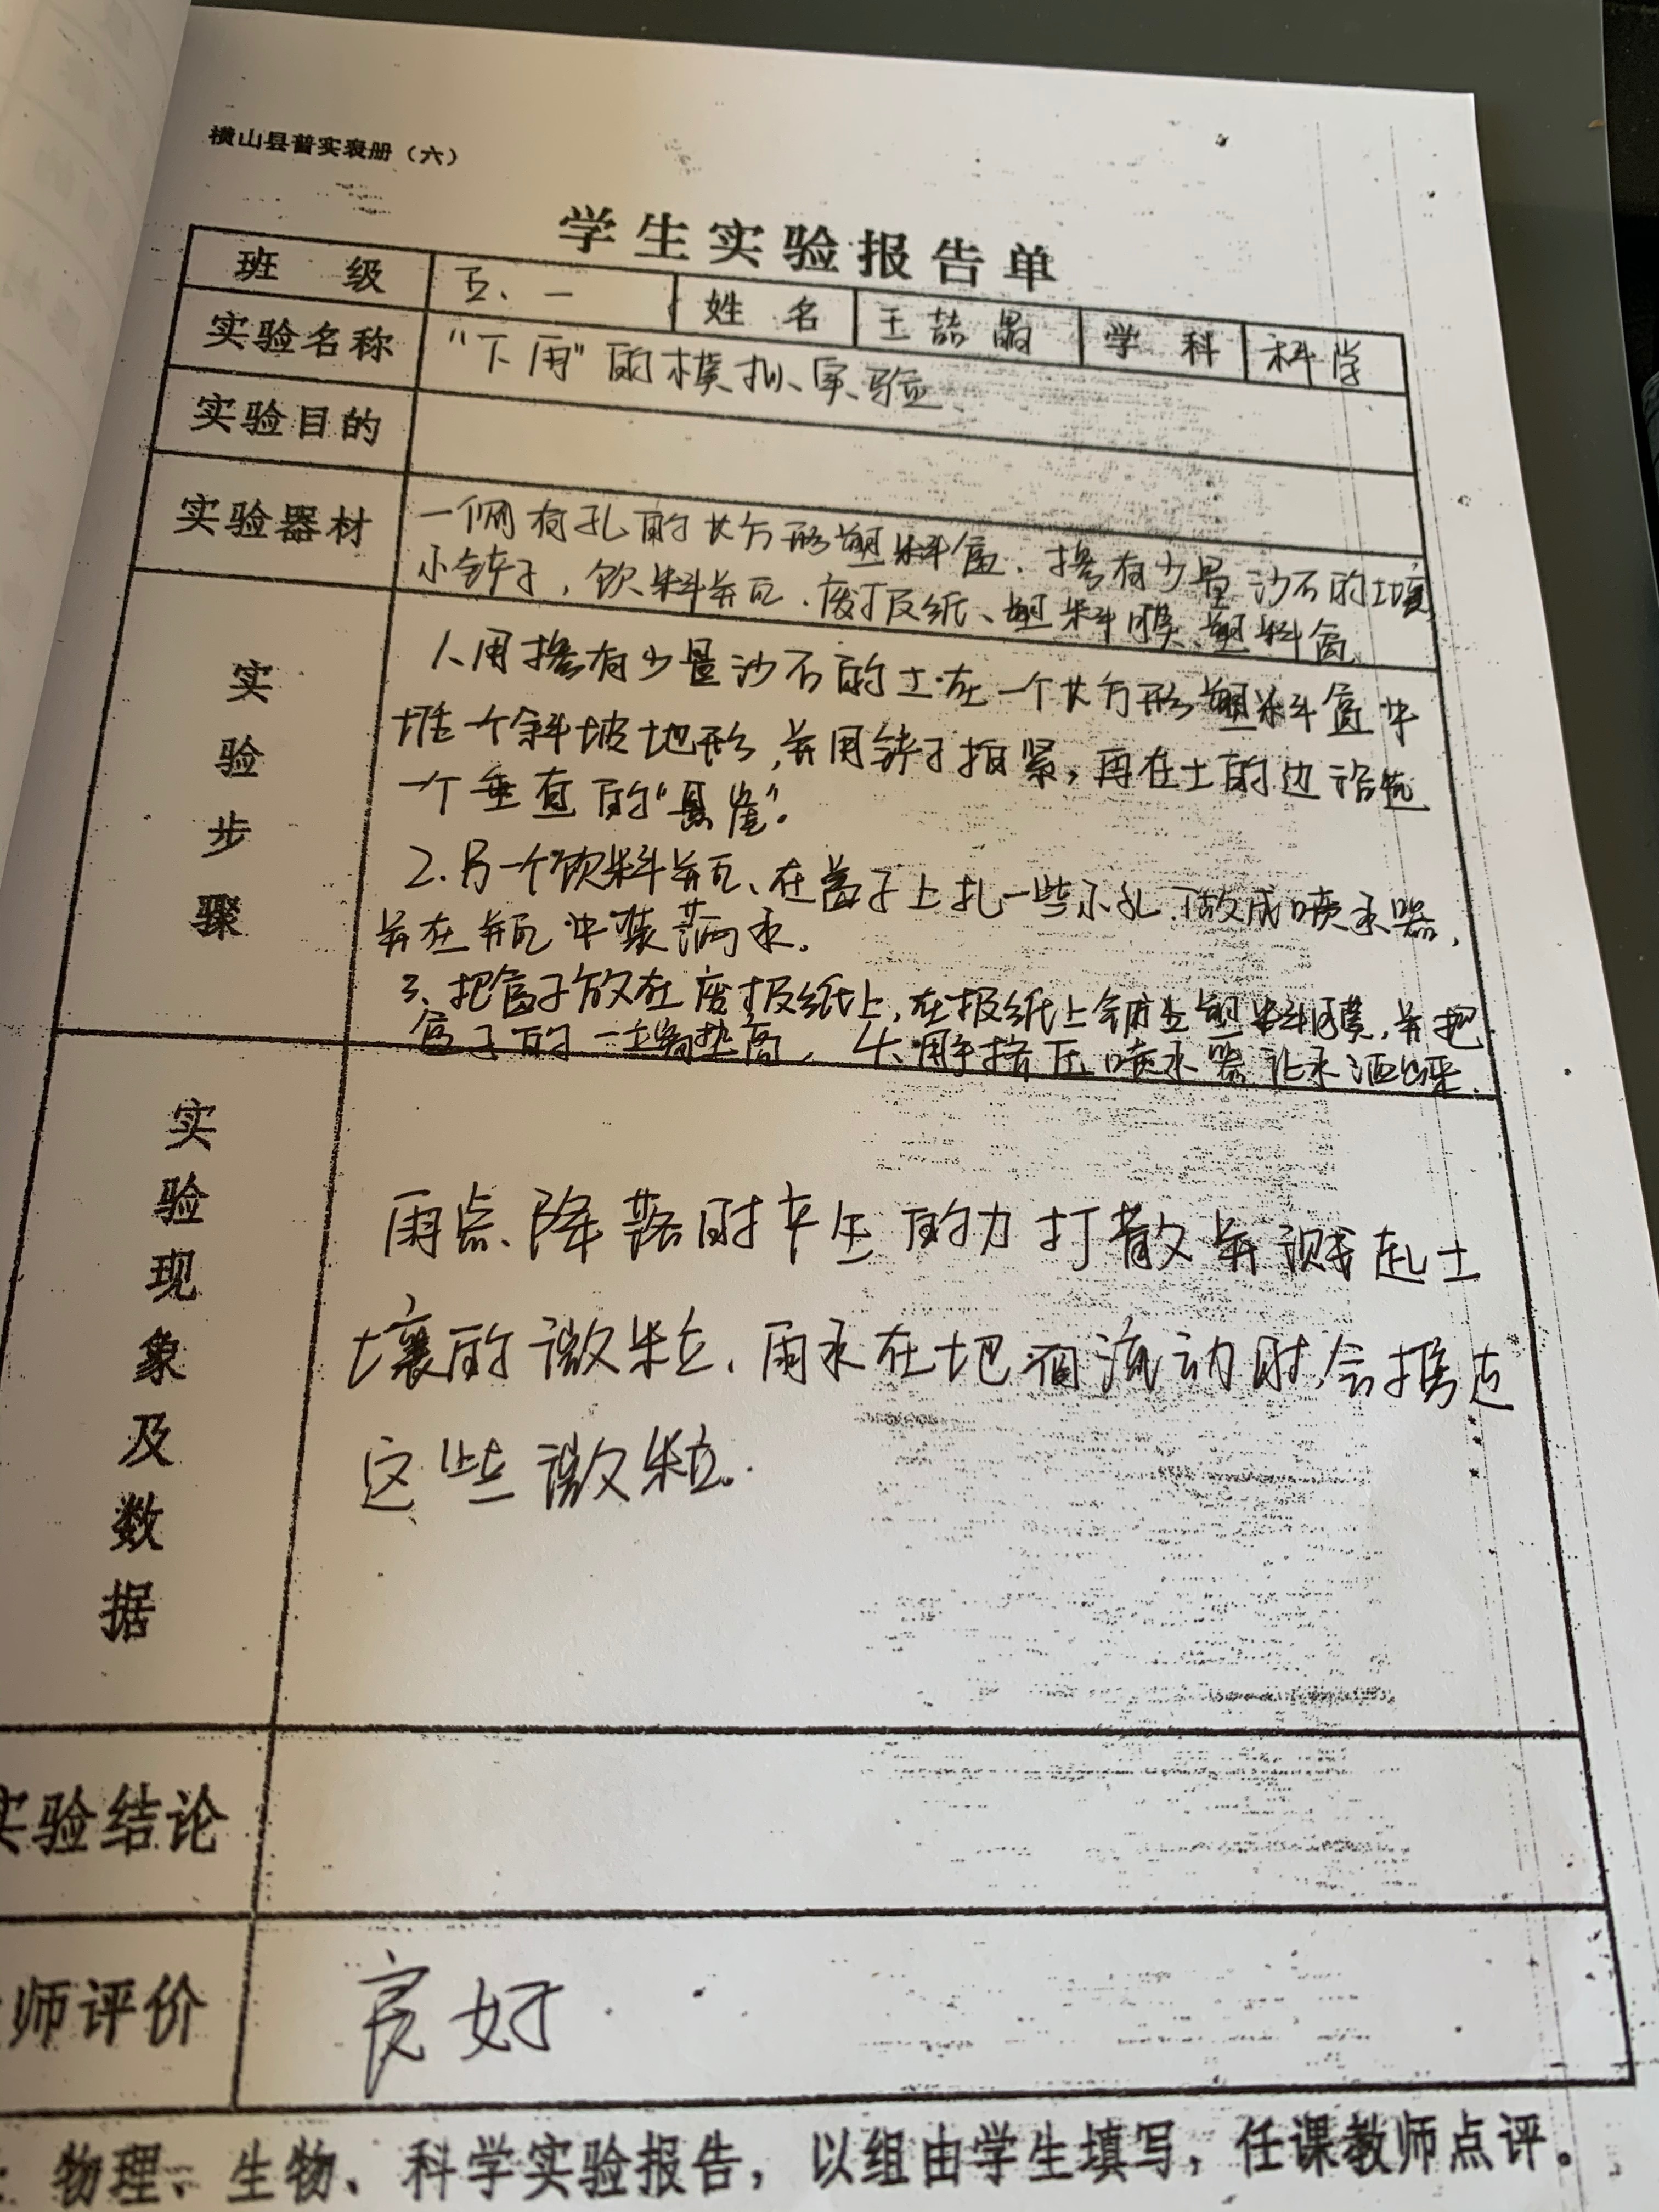 横山县普实表册（六）
学生实验报告单
班 级 五、一 姓 名 王喆晶 学 科 科学
实验名称 “下雨”的模拟实验
实验目的
实验器材 一侧有孔的长方形塑料盒、掺有少量沙石的土壤
小铲子，饮料瓶、废报纸、塑料膜、塑料盒
实验步骤
1、用掺有少量沙石的土在一个长方形塑料盒中
堆个斜坡地形，并用铲子拍紧，再在土的边沿
一个垂直的“悬崖”。
2、另一个饮料瓶、在盖子上扎一些小孔，做成喷水器，
并在瓶中装满水。
3、把盒子放在废报纸上，在报纸上铺上塑料膜，并把
盒子的一端垫高， 4、用手挤压喷水器让水洒出来.
实验现象及数据
雨点降落时产生的力打散并溅起土
壤的微粒、雨水在地面流动时会携走
这些微粒.
实验结论
师评价 良好
物理、生物、科学实验报告，以组由学生填写，任课教师点评。